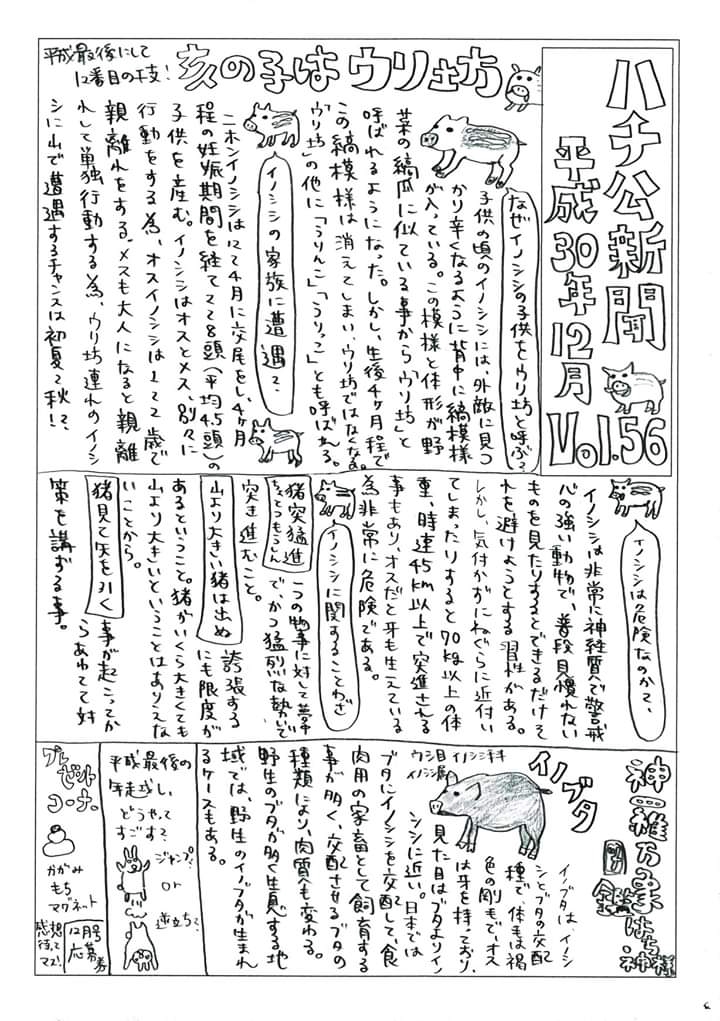 ハチ公新聞
平成30年12月
Vol.56
亥の子はウリ坊
平成最後にして
12番目の干支!
なぜイノシシの子供をウリ坊と呼ぶ?
子供の頃のイノシシには、外敵に見つ
かり辛くなるように背中に縞模様
が入っている。この模様と体形が野
菜の縞瓜に似ている事から「ウリ坊」と
呼ばれるようになった。しかし、生後4ヶ月程で
この縞模様は消えてしまい、ウリ坊ではなくなる。
「ウリ坊」の他に「うりんこ」「うりっこ」とも呼ばれる。
イノシシの家族に遭遇て、
ニホンイノシシは12て4月に交尾をし、4ヶ月
程の妊娠期間を経て2て8頭(平均4.5頭)の
子供を産む。イノシシはオスとメス、別々に
行動をする為、オスイノシシは1て2歳で
親離れをする。メスも大人になると親離
れして単独行動する為、ウリ坊連れのイノシ
シに山で遭遇するチャンスは初夏て秋!?
イノシシは危険なのかて、
イノシシは非常に神経質で警戒
心の強い動物で、普段見慣れない
ものを見たりするとできるだけそ
れを避けようとする習性がある。
しかし、気付かずにねぐらに近付い
てしまったりすると70kg以上の体
重、時速45km以上で突進される
事もあり、オスだと牙も生えている
為非常に危険である。
イノシシに関することわざ
猪突猛進
ちょとつもうしん
一つの物事に対して夢中
で、かつ猛烈な勢いで
突き進むこと。
山より大きい猪は出ぬ
誇張する
にも限度が
あるということ。猪がいくら大きくても
山より大きいということはありえな
いことから。
猪見て矢を引く
事が起こってか
らあわてて対
策を講ずる事。
神羅万象図鑑
はち神様
イノブタ
ウシ目イノシシ科
イノシシ属
イノブタは、イノシ
シとブタの交配
種で、体毛は褐
色の剛毛で、オス
は牙を持っており、
見た目はブタよりイノ
シシに近い。日本では
ブタにイノシシを交配して、食
肉用の家畜として飼育する
事が多く、交配させるブタの
種類により、肉質も変わる。
野生のブタが多く生息する地
域では、野生のイノブタが生まれ
るケースもある。
平成最後の
年越し、
どうやって
すごす?
ジャンプ?
or
逆立ち?
プレゼント
コーナー
かがみ
もち
マグネット
12月号
応募券
感想
待って
マス!